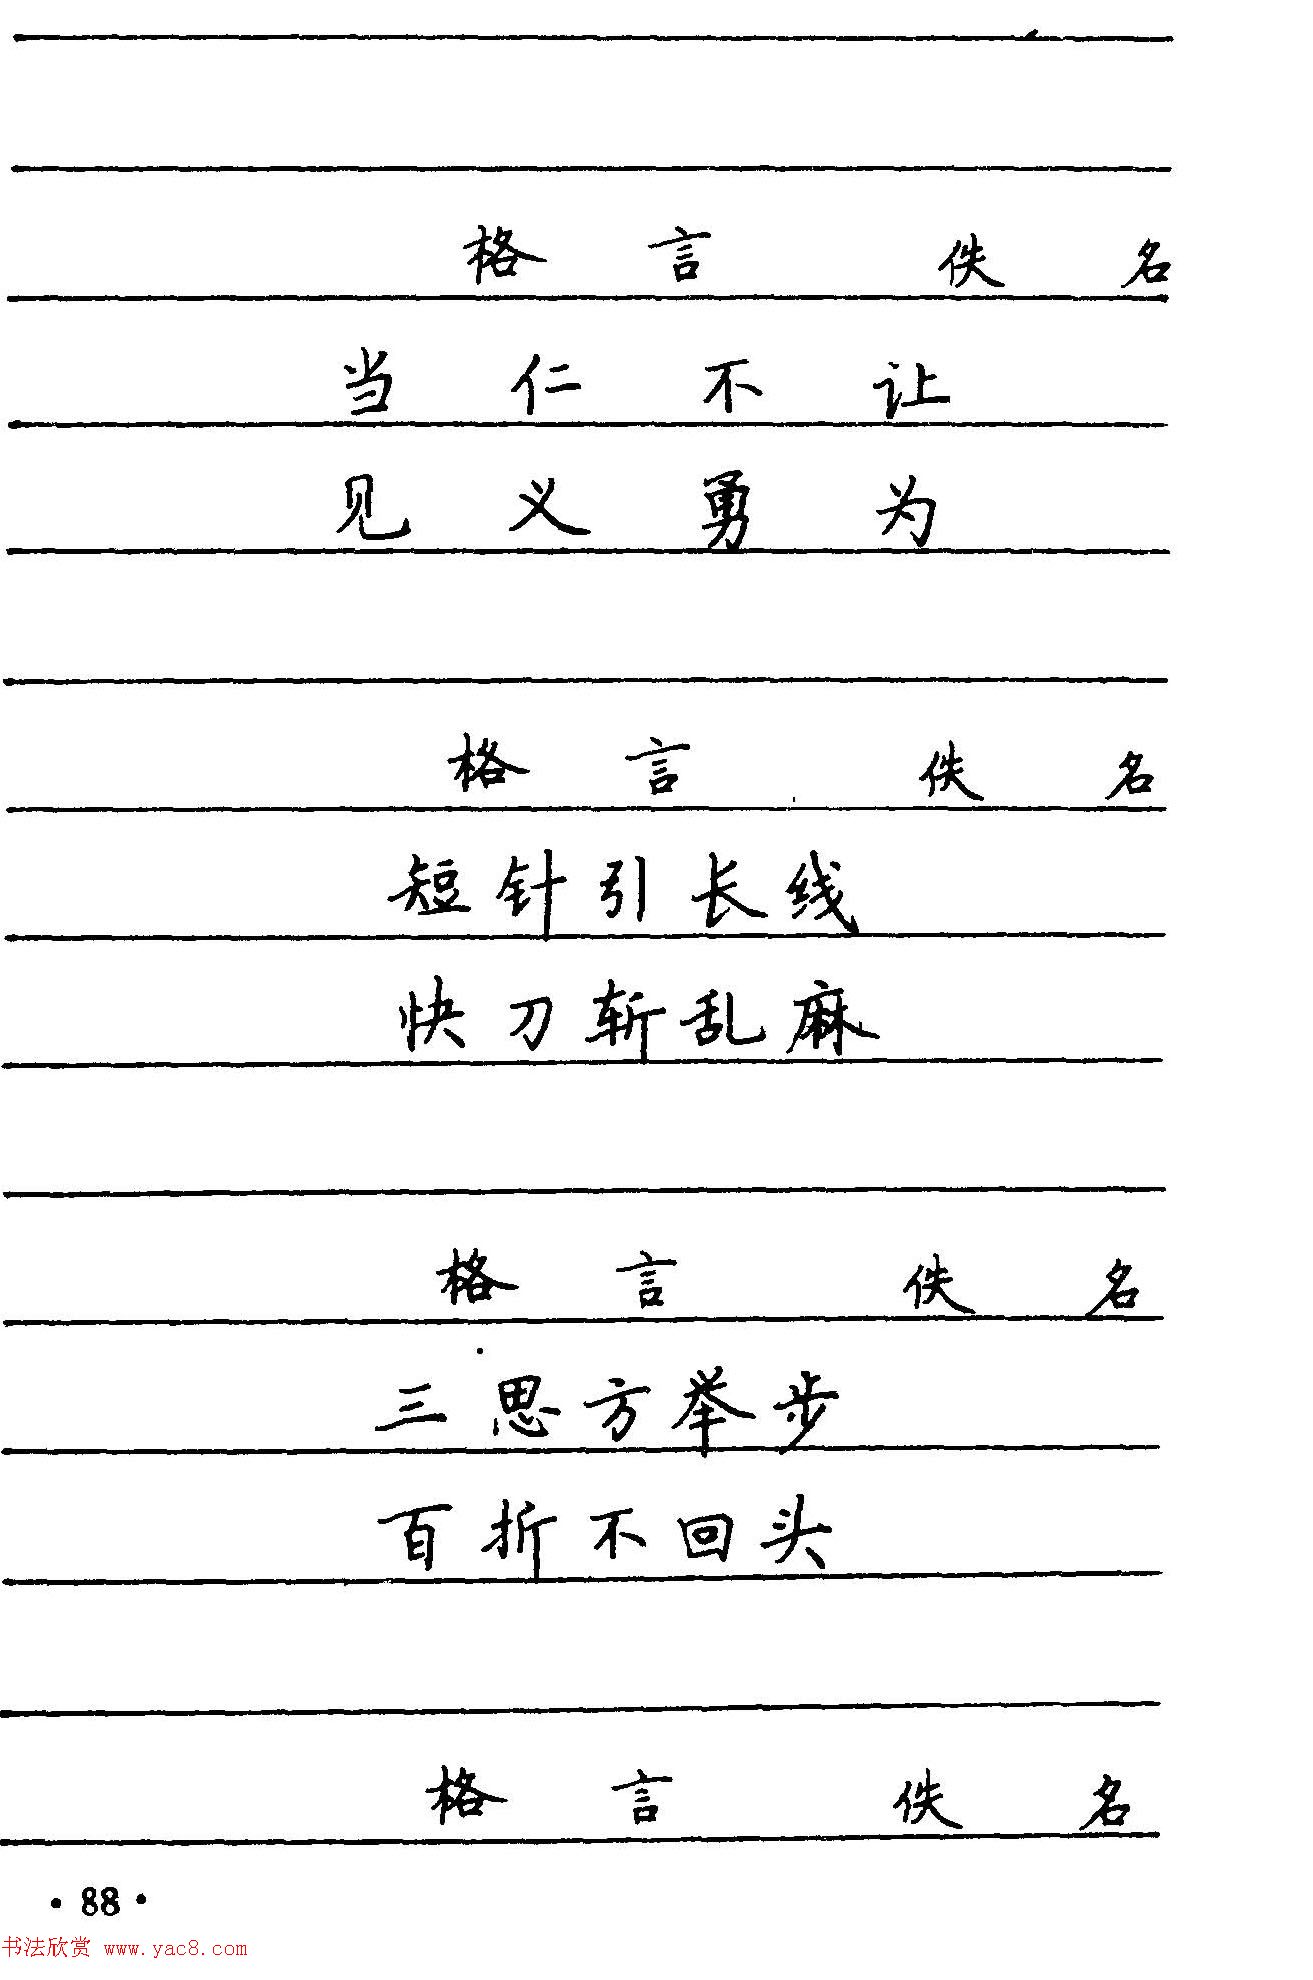 格言 佚名
当仁不让
见义勇为
格言 佚名
短针引长线
快刀斩乱麻
格言 佚名
三思方举步
百折不回头
格言 佚名
·88·
书法欣赏 www.yac8.com